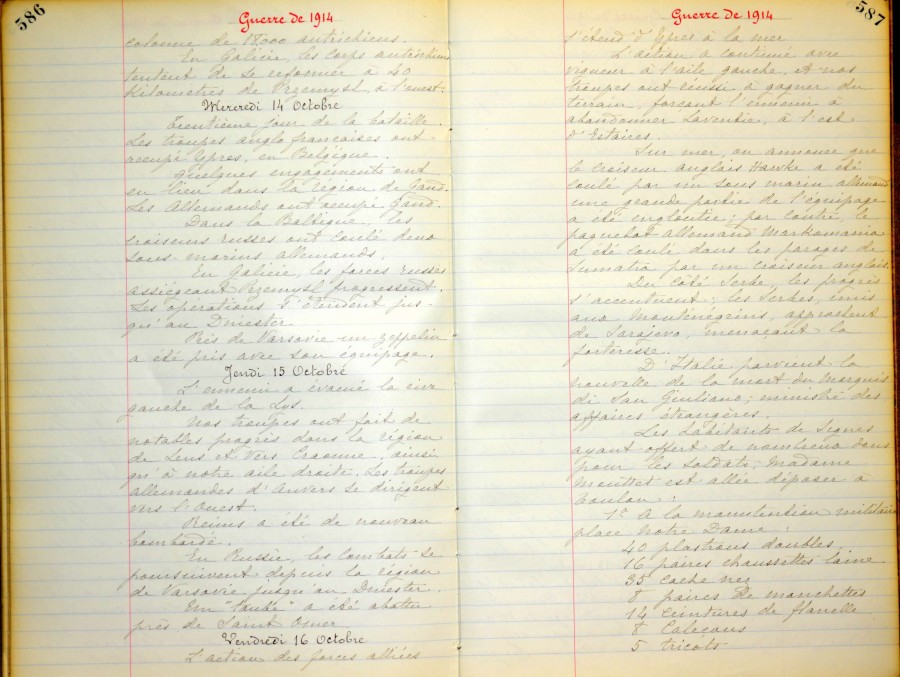 586
Guerre de 1914
colonne de 18.000 autrichiens.
En Galicie, les corps autrichiens
tentent de se reformer à 40
kilomètres de Przemysl, à l'ouest.
Mercredi 14 Octobre
Trentième jour de la bataille.
Les troupes anglo françaises ont
occupé Ypres, en Belgique.
Quelques engagements ont
eu lieu dans la région de Gand.
Les Allemands ont occupé Gand.
Dans la Baltique, les
croiseurs russes ont coulé deux
sous-marins allemands.
En Galicie, les forces russes
assiégeant Przemysl progressent.
Les opérations s'étendent jus-
qu'au Dniester.
Près de Varsovie un zeppelin
a été pris avec son équipage.
Jeudi 15 Octobre
L'ennemi a évacué la rive
gauche de la Lys.
Nos troupes ont fait de
notables progrès dans la région
de Lens et vers Craonne, ainsi
qu'à notre aile droite. Les troupes
allemandes d'Anvers se dirigent
vers l'Ouest.
Reims a été de nouveau
bombardé.
En Russie, les combats se
poursuivent depuis la région
de Varsovie jusqu'au Dniester.
Un "taube" a été abattu
près de Saint Omer
Vendredi 16 Octobre
L'action des forces alliées
587
Guerre de 1914
s'étend d'Ypres à la mer
L'action a continué avec
vigueur à l'aile gauche, et nos
troupes ont réussi à gagner du
terrain, forçant l'ennemi à
abandonner Laventie, à l'est
d'Estaires.
Sur mer, on annonce que
le croiseur anglais Hawke a été
coulé par un sous marin allemand
une grande partie de l'équipage
a été engloutie ; par contre, le
paquebot allemand Markomania
a été coulé dans les parages de
Sumatra par un croiseur anglais.
Du côté Serbe, les progrès
s'accentuent ; les Serbes, unis
aux Monténégrins, approchent
de Sarajevo, menaçant la
forteresse.
D'Italie parvient la
nouvelle de la mort du Marquis
di San Giuliano ; ministre des
affaires étrangères.
Les habitants de Signes
ayant offert de nombreux dons
pour les soldats, Madame
Mouttet est allée déposer à
Toulon :
1° A la manutention militaire
place Notre Dame :
40 plastrons doubles
16 paires chaussettes laine
35 cache nez
8 paires de manchettes
14 ceintures de flanelle
8 Caleçons
5 tricots